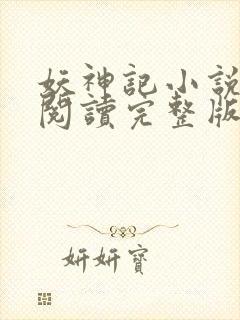 妖神記小說
閱讀完整版
妍妍寶